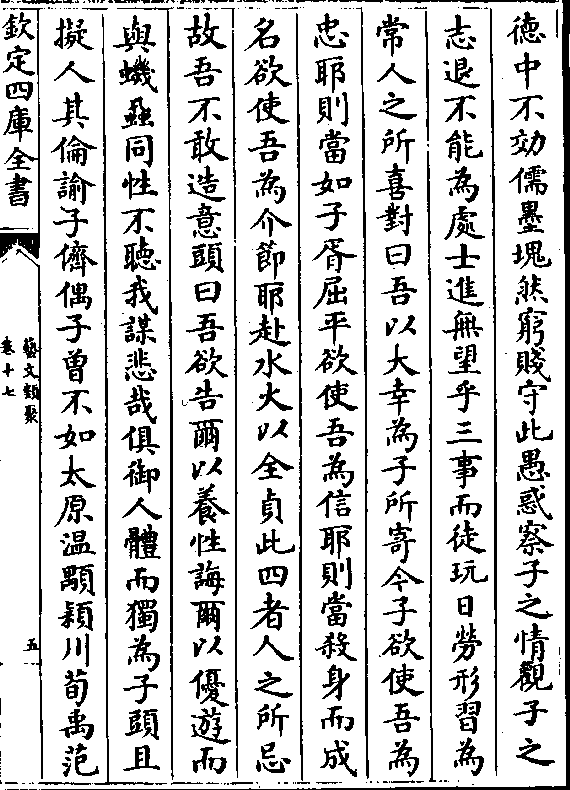 德中不効儒墨塊然窮賤守此愚惑察子之情觀子之
志退不能為處士進無望乎三事而徒玩日勞形習為
常人之所喜對曰吾以大幸為子所寄今子欲使吾為
忠耶則當如子胥屈平欲使吾為信耶則當殺身而成
名欲使吾為介節耶赴水火以全貞此四者人之所忌
故吾不敢造意頭曰吾欲告爾以養性誨爾以優遊而
與蟣蝨同性不聽我謀悲哉俱御人體而獨為子頭且
擬人其倫諭子儕偶子曾不如太原温顒潁川荀禹范
欽定四庫全書
藝文類聚
卷十七
五